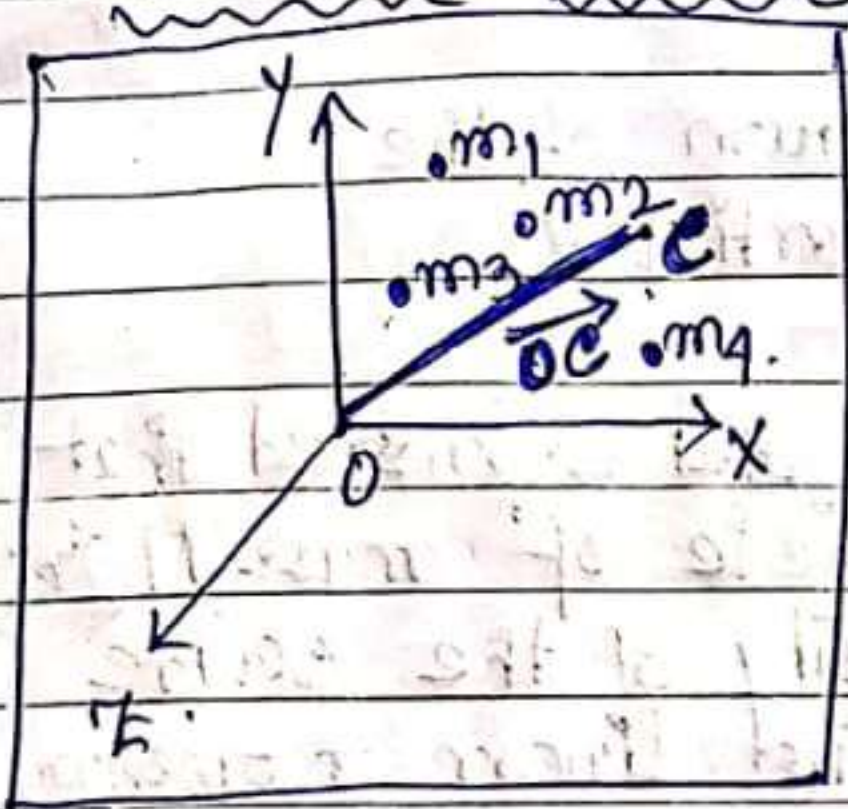 Y
m1
m2
C
m3
OC
m4.
X
O
Z